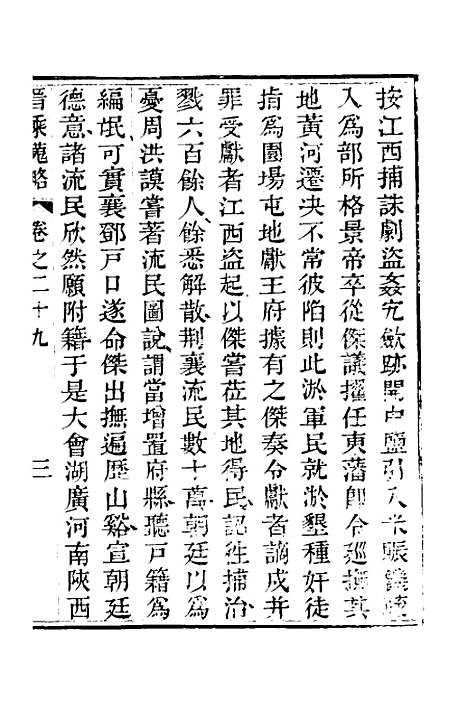 按江西捕誅劇盜姦宄斂跡開中鹽引入米賑議
入為部所格景帝卒從傑議擢任東藩卽令廵撫其
地黃河遷決不常彼陷則此淤軍民就淤墾種奸徒
指為園場屯地獻王府據有之傑奏令獻者謫戍并
罪受獻者江西盜起以傑嘗莅其地得民詔往捕治
戮六百餘人餘悉解散荆襄流民數十萬朝廷以為
憂周洪謨嘗著流民圖說謂當增置府縣聽戸籍為
編氓可實襄鄧戸口遂命傑出撫遍歷山谿宣朝廷
德意諸流民欣然願附籍于是大會湖廣河南陝西
晋乘蒐略 卷之二十九 三